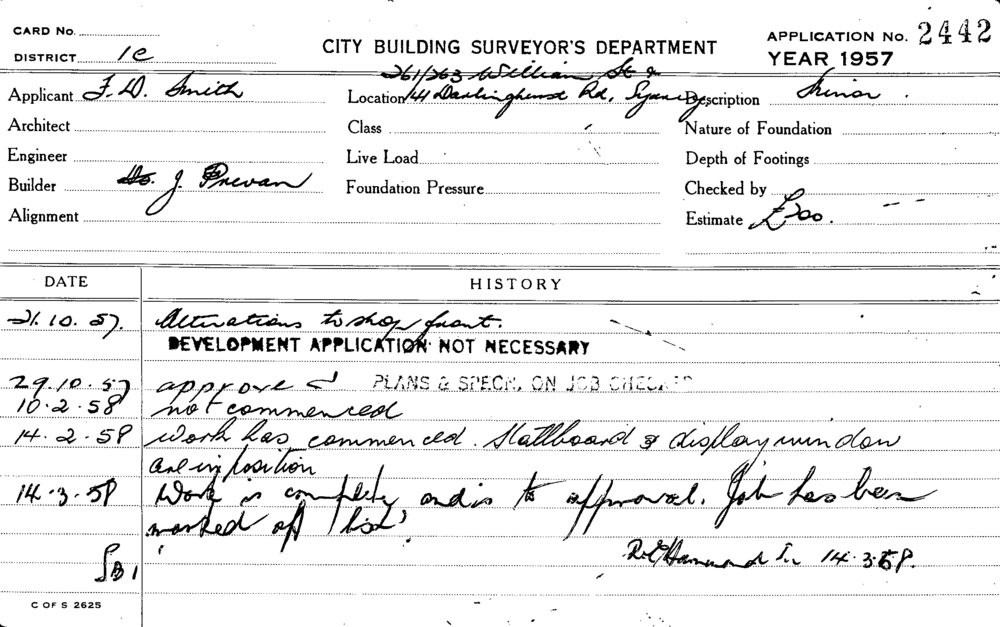 CARD No.
DISTRICT 1c
CITY BUILDING SURVEYOR'S DEPARTMENT
APPLICATION No. 2442
YEAR 1957
Applicant F. D. Smith
261/263 William St &
Location 141 Darlinghurst Rd, Sydney
Description Minor.
Architect
Class
Nature of Foundation
Engineer
Live Load
Depth of Footings
Builder J. Prevan
Foundation Pressure
Checked by
Alignment
Estimate £300.
DATE
HISTORY
21.10.57. Alterations to shop front.
DEVELOPMENT APPLICATION NOT NECESSARY
29.10.57 approved PLANS & SPECN. ON JOB CHECKED
10.2.58 not commenced
14.2.58 Work has commenced. Stallboard & display window
are in position
14.3.58 Work is complete, and is to approval. Job has been
marked off
R. Hammond 14.3.58.
C OF S 2625